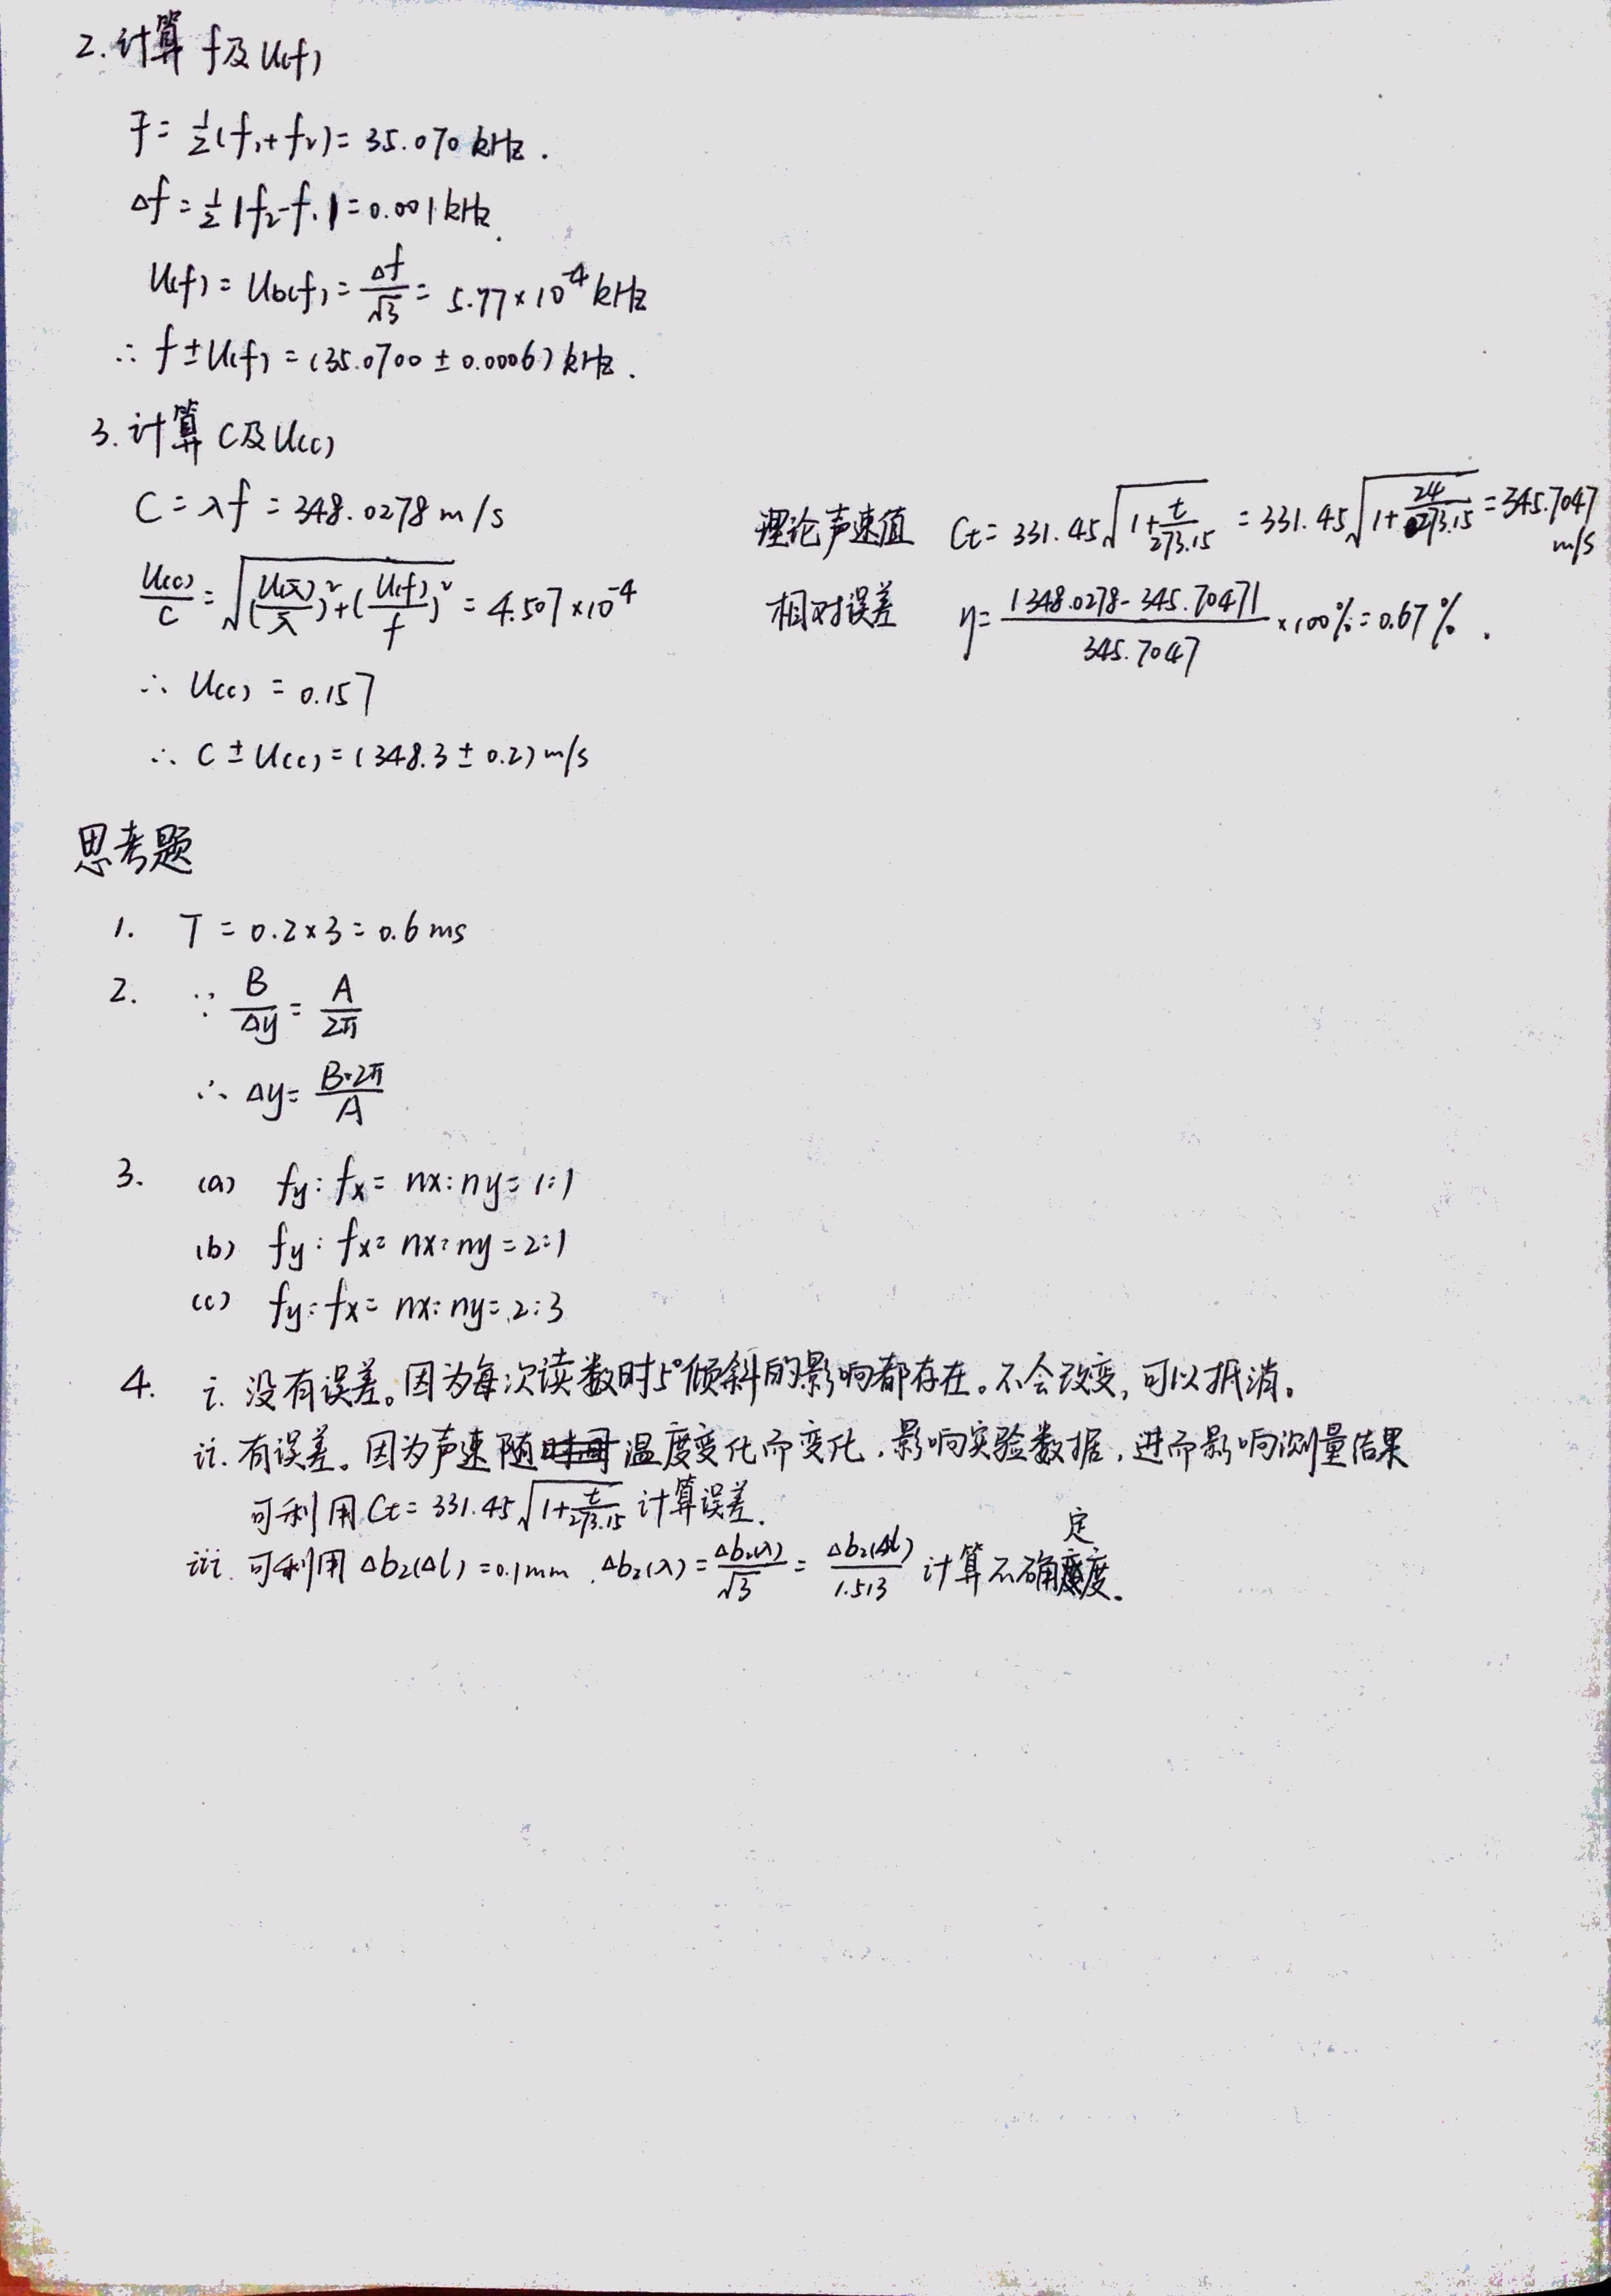 2. 计算 f及 U(f)
f̄ = 1/2(f₁+f₂) = 35.070 kHz.
Δf = 1/2|f₂-f₁| = 0.001 kHz.
U(f) = Ub(f) = Δf/√3 = 5.77×10⁻⁴ kHz
∴ f±U(f) = (35.0700 ± 0.0006) kHz.
3. 计算 C及 U(c)
C = λf = 348.0278 m/s
U(c)/C = √((U(λ̄)/λ̄)²+(U(f)/f)²) = 4.507×10⁻⁴
∴ U(c) = 0.157
∴ C ± U(c) = (348.3 ± 0.2) m/s
理论声速值 Ct = 331.45√(1+t/273.15) = 331.45√(1+24/273.15) = 345.7047 m/s
相对误差 η = |348.0278-345.7047|/345.7047 ×100% = 0.67%.
思考题
1. T = 0.2×3 = 0.6 ms
2. ∵ B/Δy = A/2π
∴ Δy = B·2π/A
3. (a) fy:fx = nx:ny = 1:1
(b) fy:fx = nx:ny = 2:1
(c) fy:fx = nx:ny = 2:3
4. i. 没有误差。因为每次读数时5°倾斜的影响都存在。不会改变,可以抵消。
ii. 有误差。因为声速随温度变化而变化,影响实验数据,进而影响测量结果
可利用 Ct = 331.45√(1+t/273.15) 计算误差.
iii. 可利用 Δb₂(Δl) = 0.1mm. Δb₂(λ) = Δb₂(λ)/√3 = Δb₂(Δl)/1.5√3 计算不确定度。